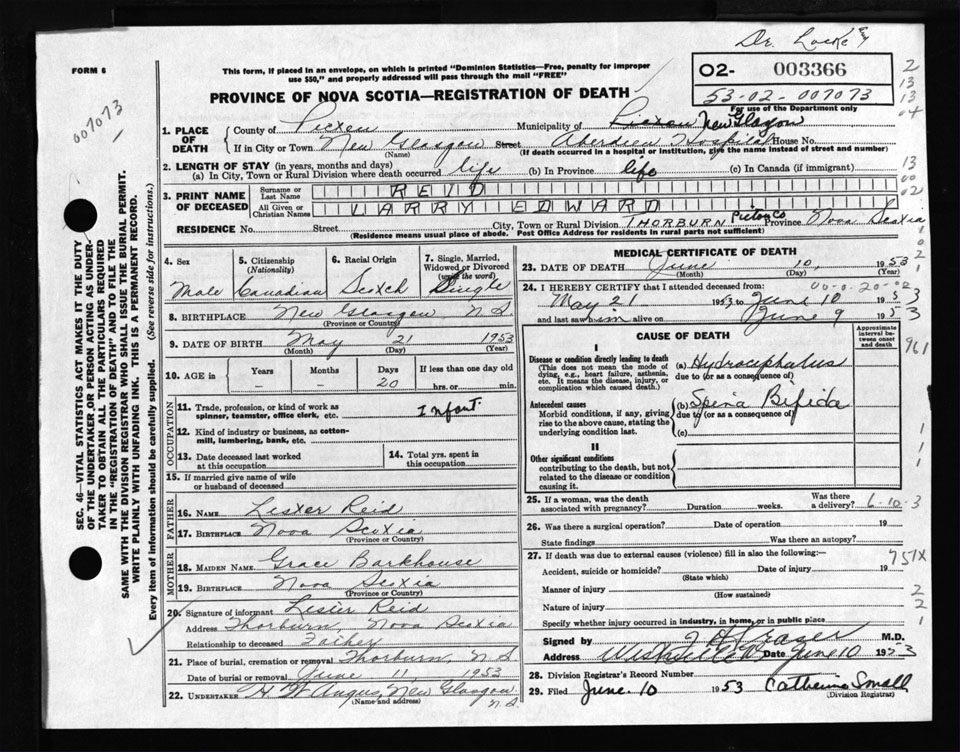 Dr. Locke
FORM 6
This form, if placed in an envelope, on which is printed "Dominion Statistics—Free, penalty for improper use $50," and properly addressed will pass through the mail "FREE"
02- 003366
53-02-007073
For use of the Department only
007073
PROVINCE OF NOVA SCOTIA—REGISTRATION OF DEATH
1. PLACE OF DEATH
County of Pictou Municipality of Pictou New Glasgow
If in City or Town New Glasgow Street Aberdeen Hospital House No.
(Name) (If death occurred in a hospital or institution, give the name instead of street and number)
2. LENGTH OF STAY (in years, months and days)
(a) In City, Town or Rural Division where death occurred life (b) In Province life (c) In Canada (if immigrant)
3. PRINT NAME OF DECEASED
Surname or Last Name REID
All Given or Christian Names LARRY EDWARD
RESIDENCE No. Street City, Town or Rural Division THORBURN Pictou Co Province Nova Scotia
(Residence means usual place of abode. Post Office Address for residents in rural parts not sufficient)
4. Sex Male
5. Citizenship (Nationality) Canadian
6. Racial Origin Scotch
7. Single, Married, Widowed or Divorced (write the word) Single
8. BIRTHPLACE New Glasgow N.S.
(Province or Country)
9. DATE OF BIRTH May 21 1953
(Month) (Day) (Year)
10. AGE in Years – Months – Days 20 If less than one day old hrs. or min.
OCCUPATION
11. Trade, profession, or kind of work as spinner, teamster, office clerk, etc. Infant
12. Kind of industry or business, as cotton-mill, lumbering, bank, etc.
13. Date deceased last worked at this occupation
14. Total yrs. spent in this occupation
15. If married give name of wife or husband of deceased
FATHER
16. NAME Lester Reid
17. BIRTHPLACE Nova Scotia
(Province or Country)
MOTHER
18. MAIDEN NAME Grace Barkhouse
19. BIRTHPLACE Nova Scotia
(Province or Country)
20. Signature of informant Lester Reid
Address Thorburn, Nova Scotia
Relationship to deceased Father
21. Place of burial, cremation or removal Thorburn, N.S.
Date of burial or removal June 11, 1953
22. UNDERTAKER H W Angus, New Glasgow N.S
(Name and address)
MEDICAL CERTIFICATE OF DEATH
23. DATE OF DEATH June 10, 1953
(Month) (Day) (Year)
24. I HEREBY CERTIFY that I attended deceased from:
May 21 1953 to June 10 1953
and last saw him alive on June 9 1953
CAUSE OF DEATH
Approximate interval between onset and death
I
Disease or condition directly leading to death
(This does not mean the mode of dying, e.g., heart failure, asthenia, etc. It means the disease, injury, or complication which caused death.)
(a) Hydrocephalus
due to (or as a consequence of)
Antecedent causes
Morbid conditions, if any, giving rise to the above cause, stating the underlying condition last.
(b) Spina Bifida
due to (or as a consequence of)
(c)
II
Other significant conditions
contributing to the death, but not related to the disease or condition causing it.
25. If a woman, was the death associated with pregnancy? Duration weeks. Was there a delivery? 6-10-3
26. Was there a surgical operation? Date of operation 19
State findings Was there an autopsy?
27. If death was due to external causes (violence) fill in also the following:— 751X
Accident, suicide or homicide? Date of injury 19
(State which)
Manner of injury
(How sustained)
Nature of injury
Specify whether injury occurred in industry, in home, or in public place
Signed by Fraser M.D.
Address Date June 10 1953
28. Division Registrar's Record Number
29. Filed June 10 1953 Catherine Small
(Division Registrar)
SEC. 46—VITAL STATISTICS ACT MAKES IT THE DUTY
OF THE UNDERTAKER OR PERSON ACTING AS UNDER-
TAKER TO OBTAIN ALL THE PARTICULARS REQUIRED
IN THE "REGISTRATION OF DEATH" AND TO FILE THE
SAME WITH THE DIVISION REGISTRAR WHO SHALL ISSUE THE BURIAL PERMIT.
WRITE PLAINLY WITH UNFADING INK. THIS IS A PERMANENT RECORD.
Every item of information should be carefully supplied. (See reverse side for instructions.)